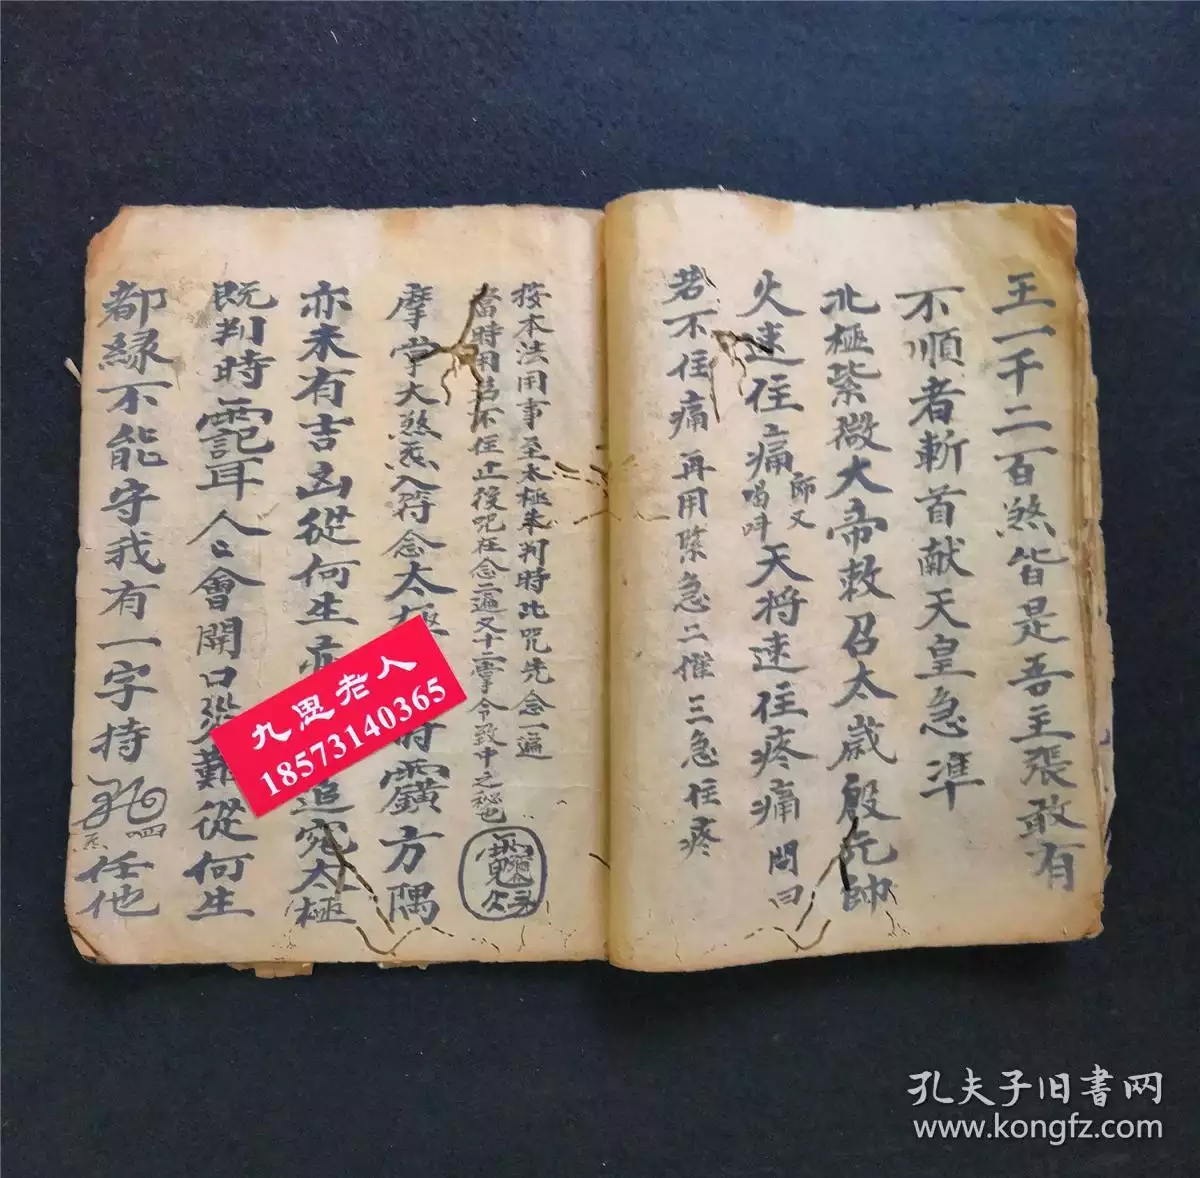 王一千二百煞皆是吾主張敢有
不順者斬首献天皇急準
北極紫微大帝敕召太歲殷元帥
火速住痛 師又喝吽 天将速住疼痛 問曰
若不住痛再用除急二催三急住疼
按本法用事至太極未判時此咒先念一遍
當時用若不住止後咒在念二遍又十二
摩掌大煞炁入符念太極
方隅
亦未有吉凶從何生
追究太極
既判時
耳人々會開口
難從何生
都緣不能守我有一字持
任他
九思老人
18573140365
孔夫子旧書网
www.kongfz.com